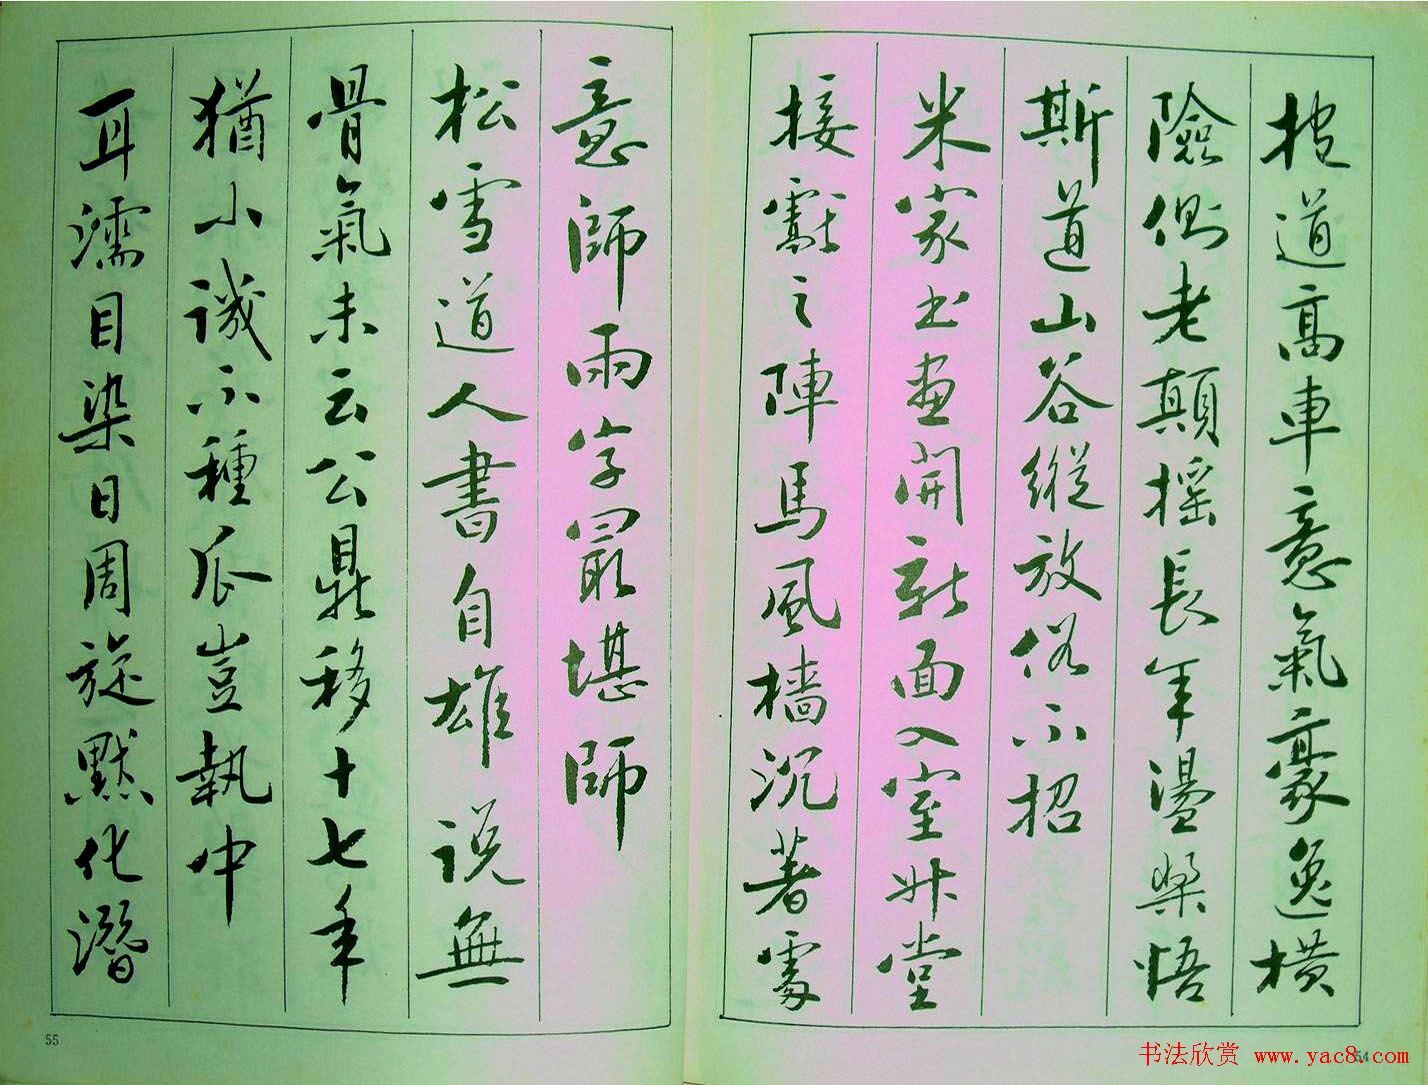 披道高車意氣豪逸横
險側老顛摇長年盪槳悟
斯道山谷縱放俗不招
米家書畫開新面入室升堂
接獻之陣馬風檣沉著處
意師兩字最堪師
松雪道人書自雄説無
骨氣未云公鼎移十七年
猶小譏不種瓜豈執中
耳濡目染日周旋默化潛
54
55
书法欣赏 www.yac8.com